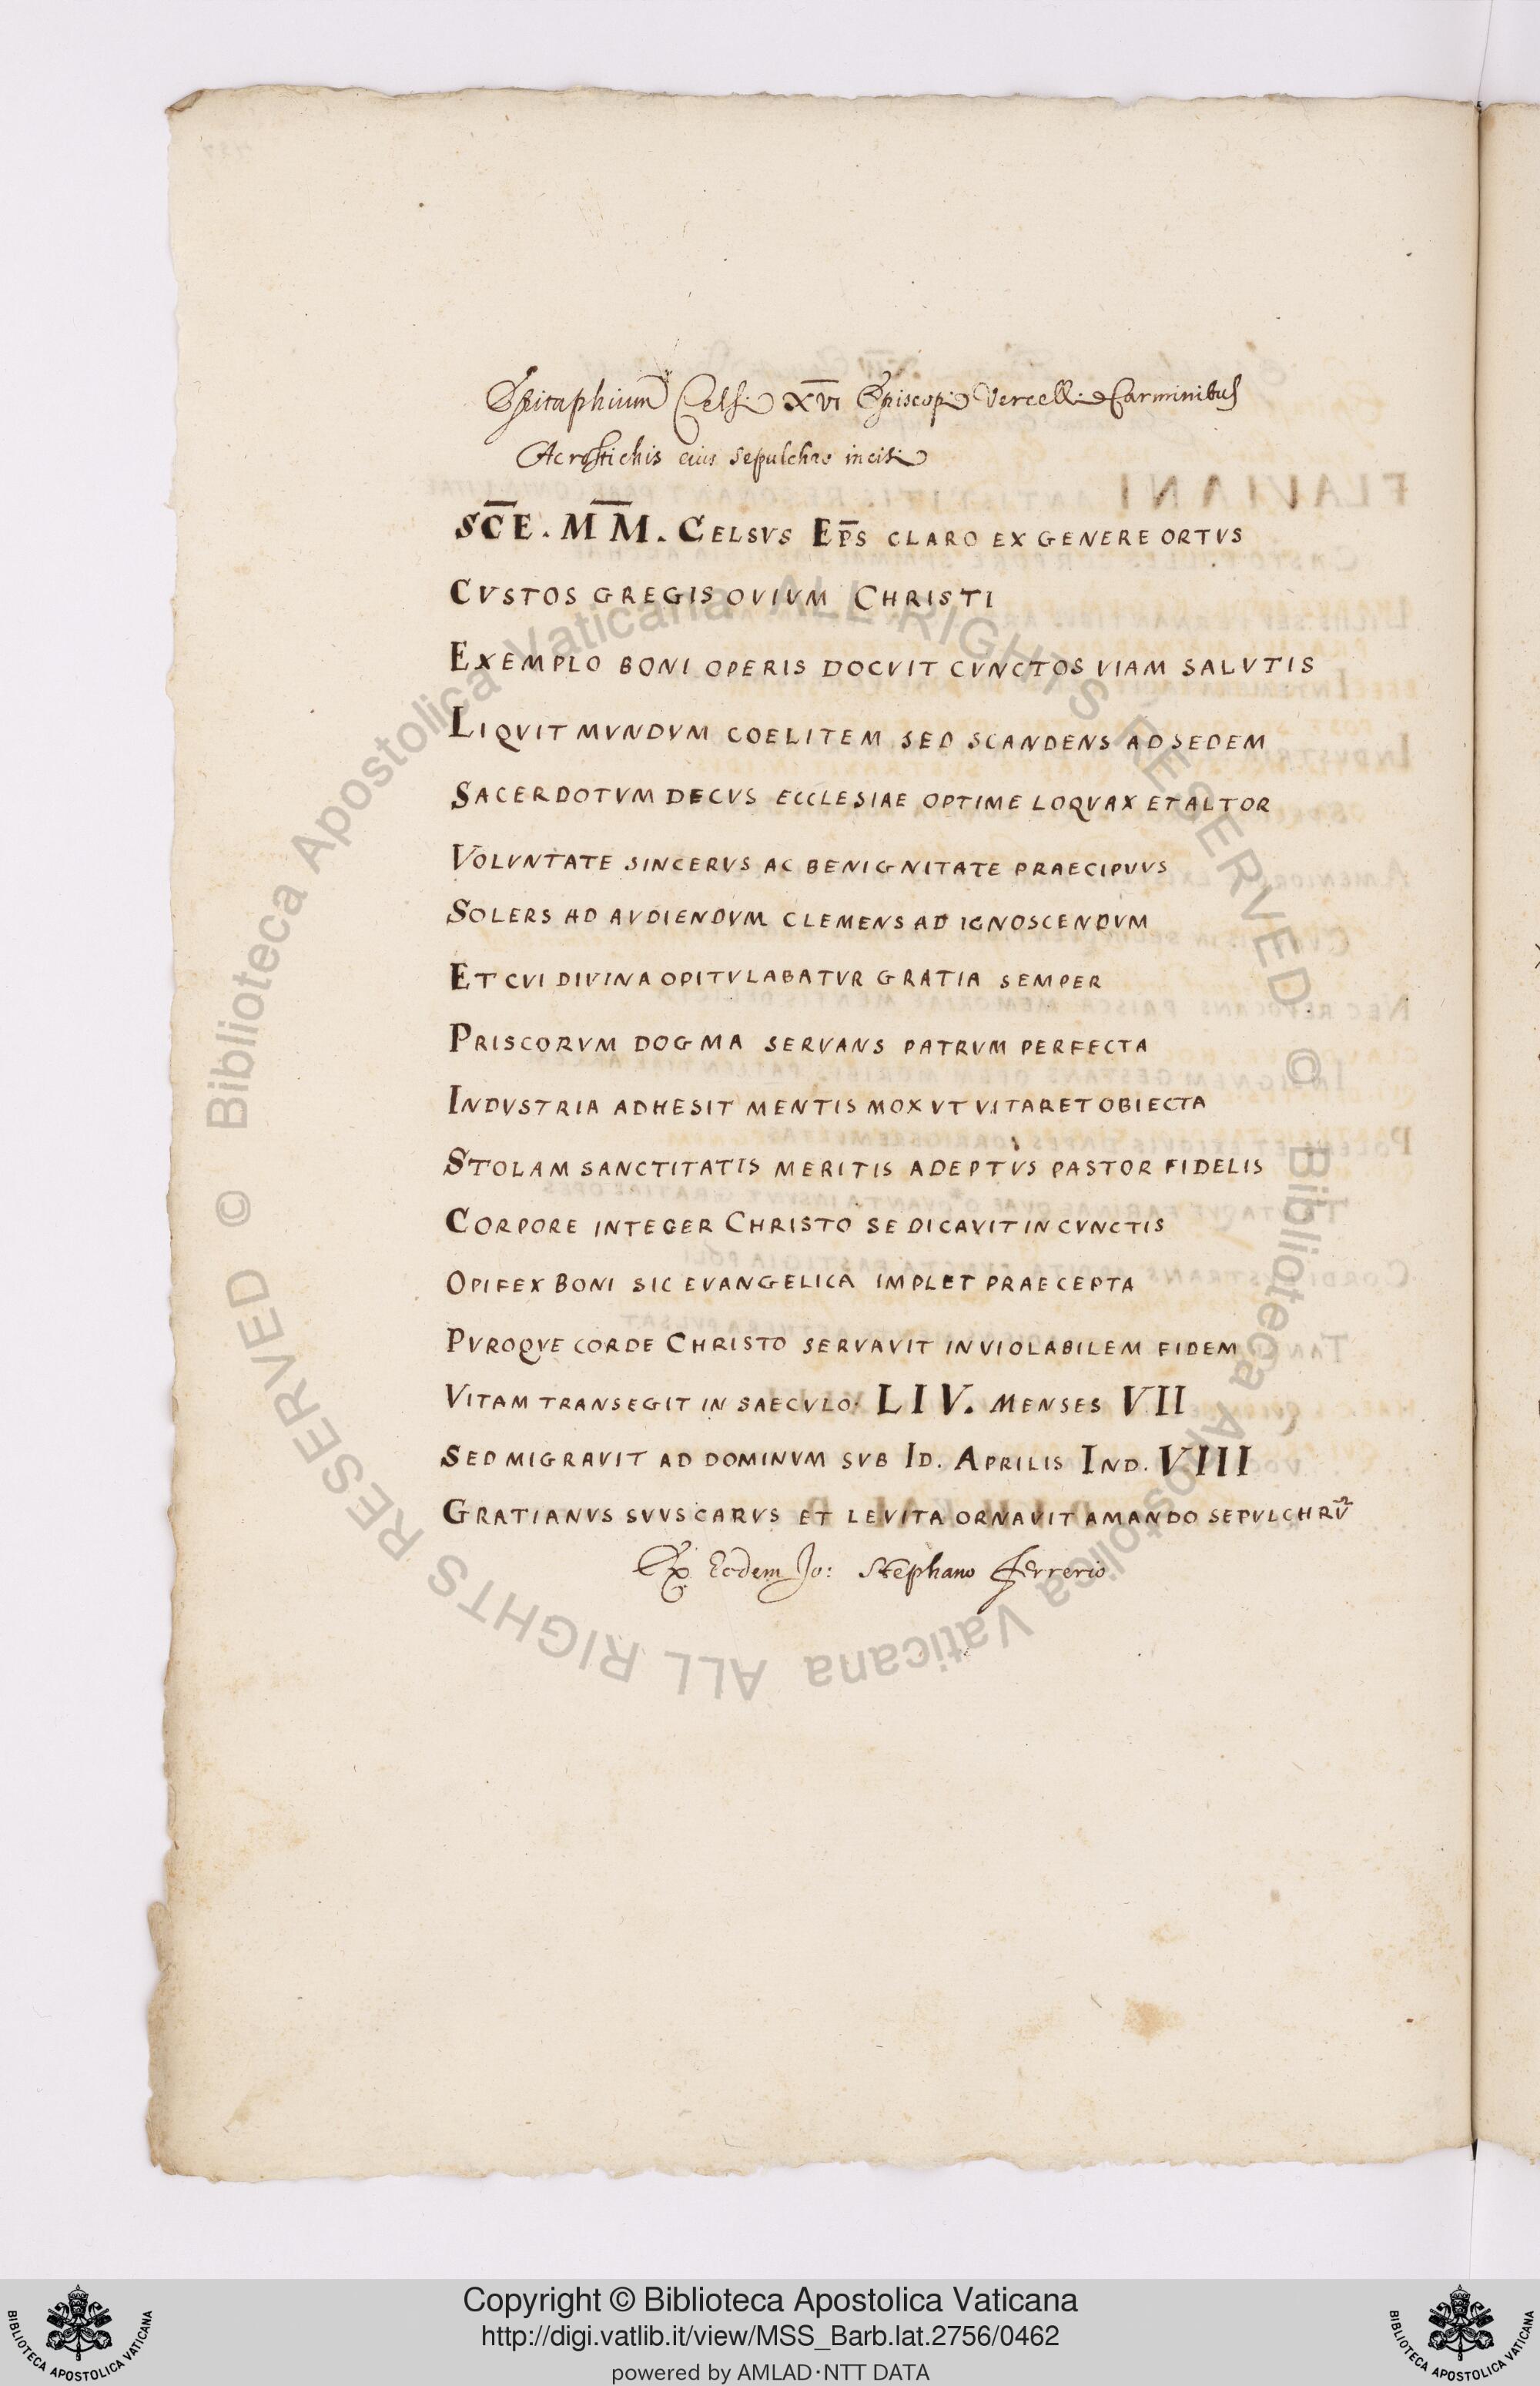 Epitaphium Celsi XVI Episcopi Vercell: Carminibus
Acrostichis eius sepulchro incisi
SC̅E. M̅M̅. CELSVS EP̅S CLARO EX GENERE ORTVS
CVSTOS GREGIS OVIVM CHRISTI
EXEMPLO BONI OPERIS DOCVIT CVNCTOS VIAM SALVTIS
LIQVIT MVNDVM COELITEM SED SCANDENS AD SEDEM
SACERDOTVM DECVS ECCLESIAE OPTIME LOQVAX ET ALTOR
VOLVNTATE SINCERVS AC BENIGNITATE PRAECIPVVS
SOLERS AD AVDIENDVM CLEMENS AD IGNOSCENDVM
ET CVI DIVINA OPITVLABATVR GRATIA SEMPER
PRISCORVM DOGMA SERVANS PATRVM PERFECTA
INDVSTRIA ADHESIT MENTIS MOX VT VITARET OBIECTA
STOLAM SANCTITATIS MERITIS ADEPTVS PASTOR FIDELIS
CORPORE INTEGER CHRISTO SE DICAVIT IN CVNCTIS
OPIFEX BONI SIC EVANGELICA IMPLET PRAECEPTA
PVROQVE CORDE CHRISTO SERVAVIT INVIOLABILEM FIDEM
VITAM TRANSEGIT IN SAECVLO. LIV. MENSES VII
SED MIGRAVIT AD DOMINVM SVB ID. APRILIS IND. VIII
GRATIANVS SVVS CARVS ET LEVITA ORNAVIT AMANDO SEPVLCHRV̅
Ex Eodem Jo: Stephano Ferrerio
© Biblioteca Apostolica Vaticana ALL RIGHTS RESERVED © Biblioteca Apostolica Vaticana ALL RIGHTS RESERVED
Copyright © Biblioteca Apostolica Vaticana
http://digi.vatlib.it/view/MSS_Barb.lat.2756/0462
powered by AMLAD·NTT DATA
BIBLIOTECA APOSTOLICA VATICANA
BIBLIOTECA APOSTOLICA VATICANA